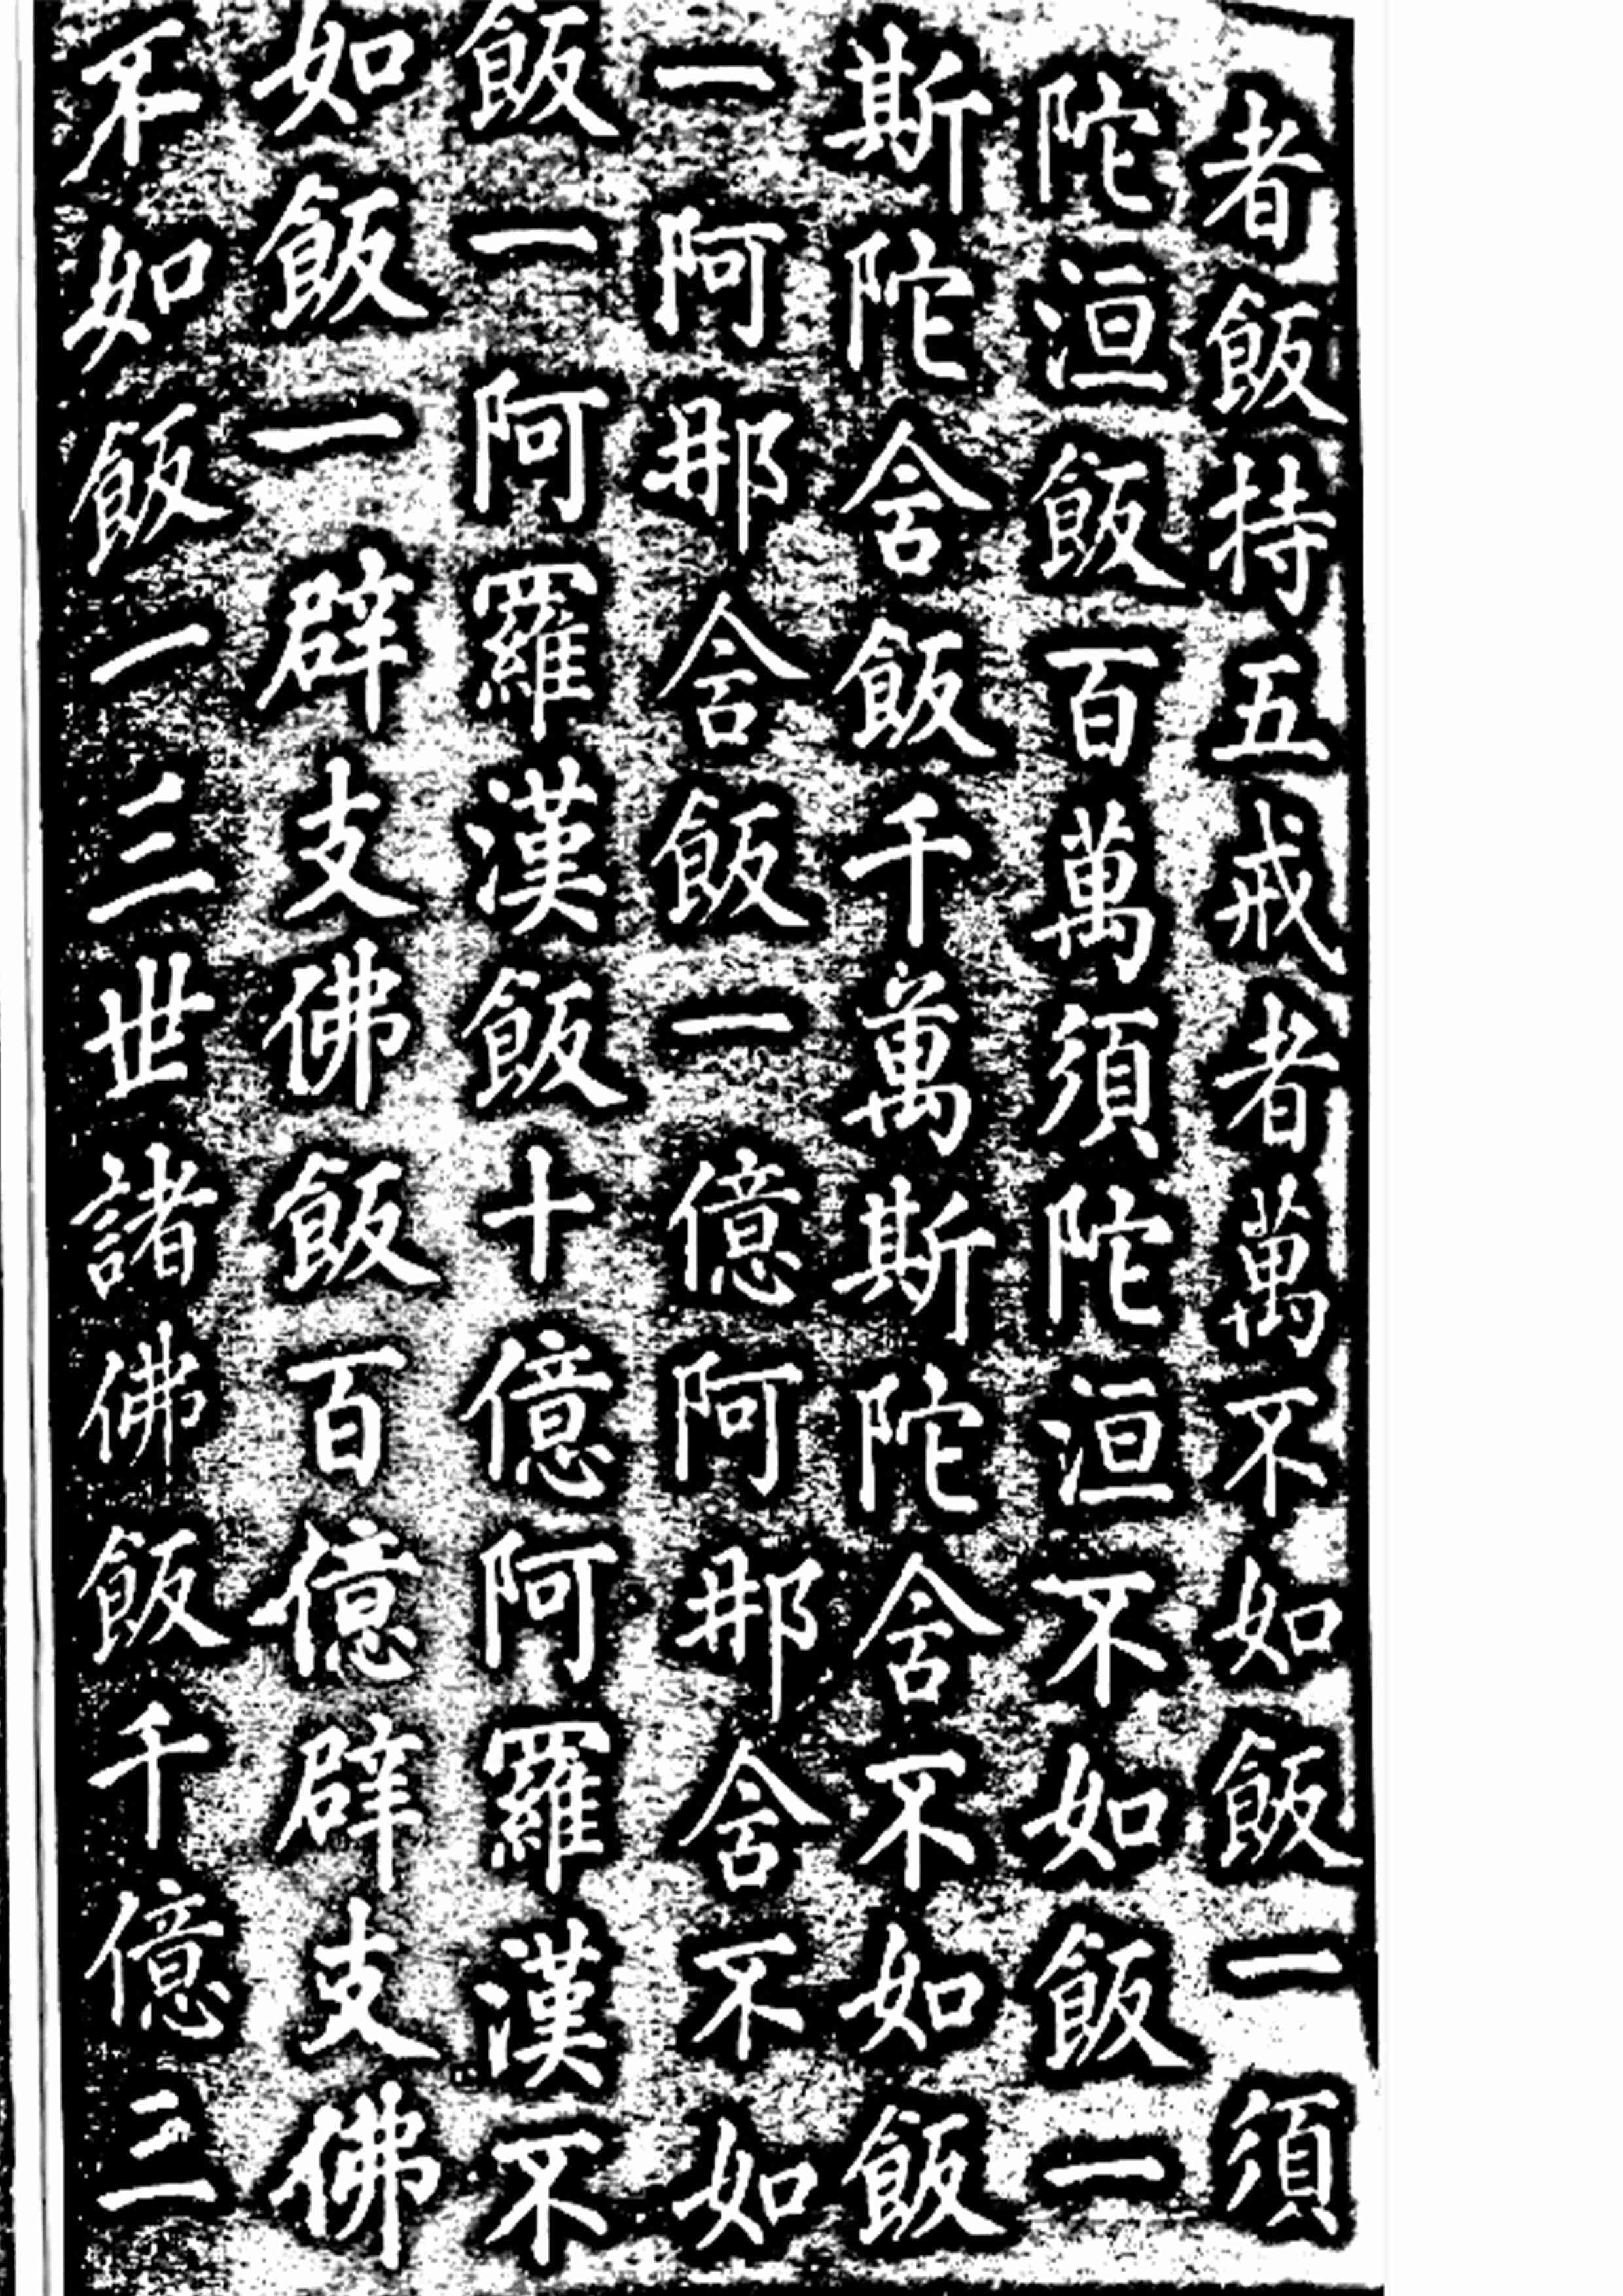 者飯持五戒者萬不如飯一須
陀洹飯百萬須陀洹不如飯一
斯陀含飯千萬斯陀含不如飯
一阿那含飯一億阿那含不如
飯一阿羅漢飯十億阿羅漢不
如飯一辟支佛飯百億辟支佛
不如飯一三世諸佛飯千億三